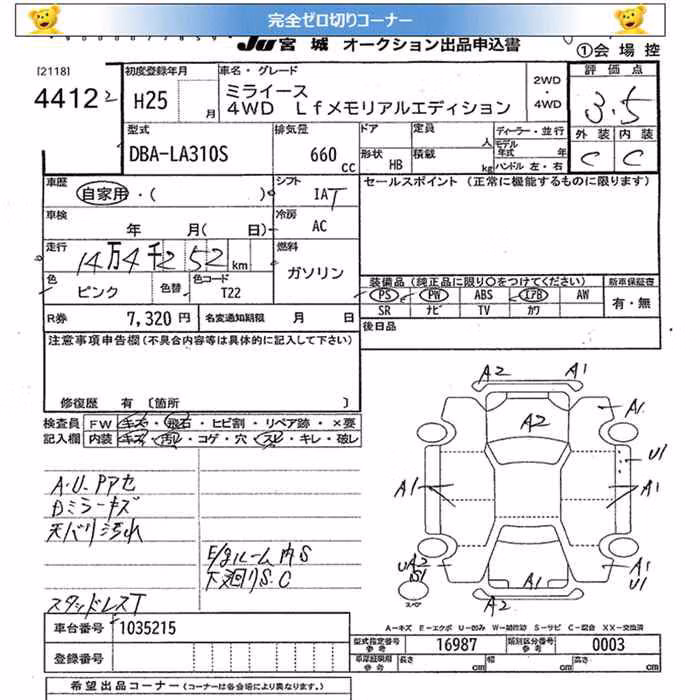 完全ゼロ切りコーナー
JU 宮城 オークション出品申込書 ①会場控
[2118] 4412 2
初度登録年月 H25 月
車名・グレード ミライース
4WD LfメモリアルエディSHョン
2WD ・ 4WD
評価点 3.5
外装 内装
C C
型式 DBA-LA310S
排気量 660 CC
ドア 定員 人
形状 HB 積載 kg
ディーラー・並行
モデル年式 年
ハンドル 左・右
車歴 自家用・( )
シフト IAT
セールスポイント (正常に機能するものに限ります)
車検 年 月( 日)
冷房 AC
走行 14万4千252 km
燃料 ガソリン
色 ピンク 色替 色コード T22
装備品 (純正品に限り○をつけてください) 新車保証書
PS PW ABS エアB AW 有・無
SR ナビ TV カワ
R券 7,320 円 名変通知期限 月 日
後日品
注意事項申告欄 (不具合内容等は具体的に記入して下さい)
修復歴 有 〔箇所 〕
検査員 FW キズ・飛石・ヒビ割・リペア跡・×要
記入欄 内装 キズ・汚レ・コゲ・穴・スレ・キレ・破レ
A.U.Pアセ
Dミラーキズ
天バリ汚れ
E/gルーム内S
下廻りS.C
スタッドレスT
A2 A1
A2 A1
U1
A1 A1
UA2 S1
A1 U1
スペア
A1
A2
A-キズ E-エクボ U-凹み W-補修跡 S-サビ C-腐食 XX-交換済
車台番号 1035215
型式指定番号 参考 16987 類別区分番号 参考 0003
登録番号
車庫証明用 参考 長さ cm 幅 cm 高さ cm
希望出品コーナー (コーナーは各会場により異なります。)